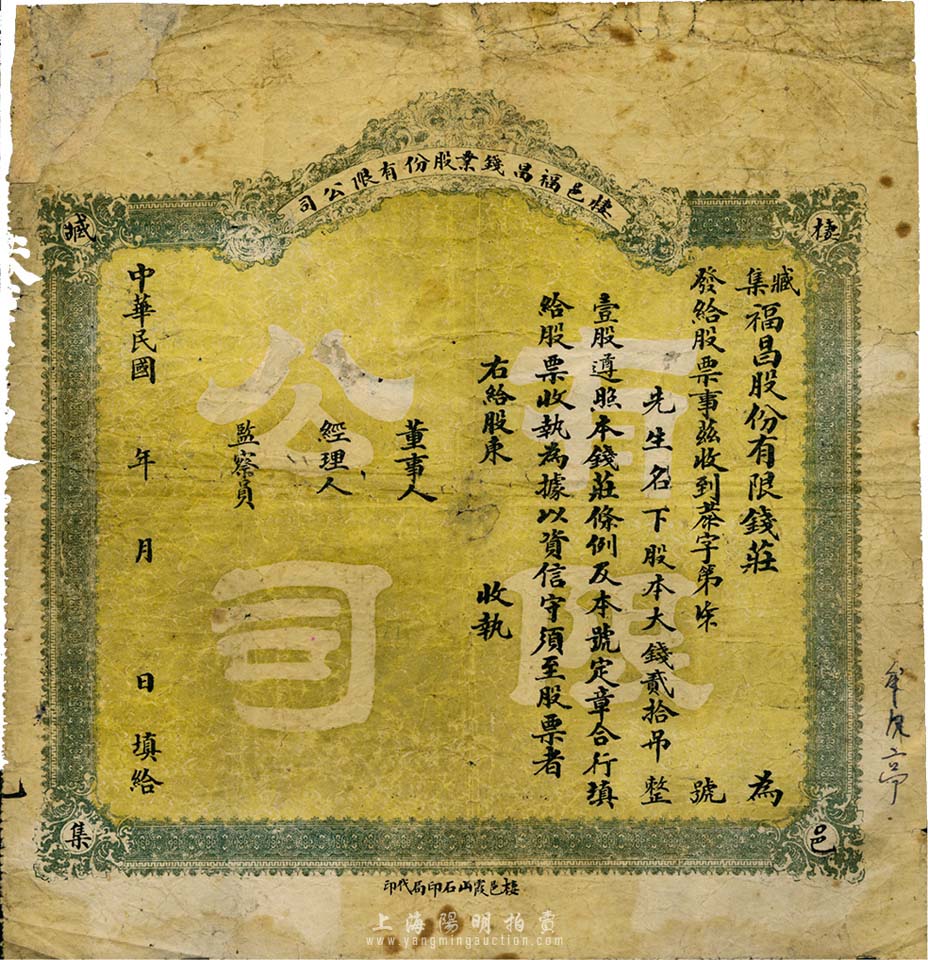 棲邑福昌錢業股份有限公司
棲
邑
臧
集
有限
公司
臧集福昌股份有限錢莊 為
發給股票事茲收到恭字第柒 號
先生名下股本大錢貳拾吊整
壹股遵照本錢莊條例及本號定章合行填
給股票收執為據以資信守須至股票者
右給股東 收執
董事人
經理人
監察員
中華民國 年 月 日 填給
棲邑霞山石印局代印
上海陽明拍賣
www.yangmingauction.com